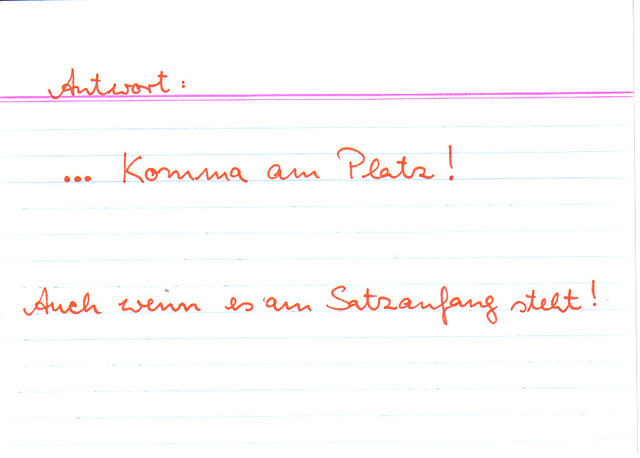 Antwort:
... Komma am Platz!
Auch wenn es am Satzanfang steht!